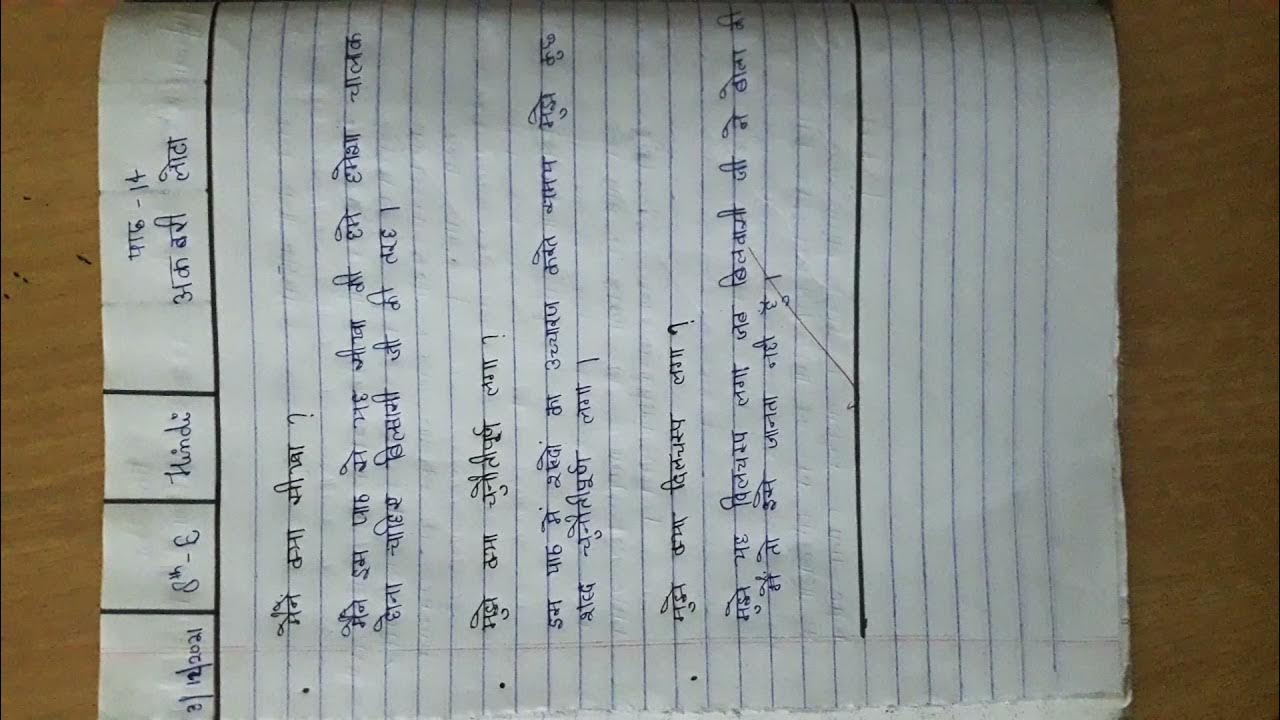 3/12/2021
8th - E
Hindi
पाठ - 14
अकबरी लोटा
मैंने क्या सीखा ?
मैंने इस पाठ से यह सीखा की हमे हमेशा चालक
होना चाहिए बिलवासी जी की तरह ।
मुझे क्या चुनौतीपूर्ण लगा ?
इस पाठ में शब्दों का उच्चारण करते समय मुझे कुछ
शब्द चुनौतीपूर्ण लगा ।
मुझे क्या दिलचस्प लगा ?
मुझे यह दिलचस्प लगा जब बिलवासी जी ने बोला की
में तो इसे जानता नहीं हुँ ।